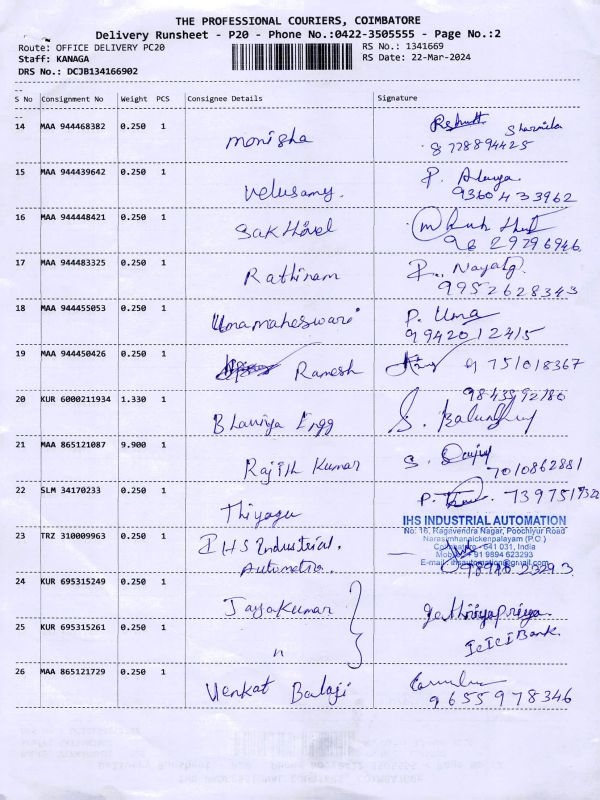 THE PROFESSIONAL COURIERS, COIMBATORE
Delivery Runsheet - P20 - Phone No.:0422-3505555 - Page No.:2
Route: OFFICE DELIVERY PC20 RS No.: 1341669
Staff: KANAGA RS Date: 22-Mar-2024
DRS No.: DCJB134166902
S No Consignment No Weight PCS Consignee Details Signature
14 MAA 944468382 0.250 1 Monisha Sharmila
8778894425
15 MAA 944439642 0.250 1 Velusamy. P.
9360433962
16 MAA 944448421 0.250 1 Sakthivel
9629796946
17 MAA 944483325 0.250 1 Rathinam
9952628343
18 MAA 944455053 0.250 1 Umamaheswari P. Uma
9942012415
19 MAA 944450426 0.250 1 Ramesh 9751018367
20 KUR 6000211934 1.330 1 Bhavya Engg S.
9843592780
21 MAA 865121087 9.900 1 Rajith Kumar S.
7010862881
22 SLM 34170233 0.250 1 Thiyagu P.
IHS INDUSTRIAL AUTOMATION
No: 16, Ragavendra Nagar, Poochiyur Road
Narasimhanaickenpalayam (P.O.)
Coimbatore - 641 031, India
Mobile: +91 9894 623293
E-mail: ihsautomation@gmail.com
23 TRZ 310009963 0.250 1 IHS Industrial.
Automation.
24 KUR 695315249 0.250 1 Jayakumar
25 KUR 695315261 0.250 1 " ICICI Bank.
26 MAA 865121729 0.250 1 Venkat Balaji
9655978346